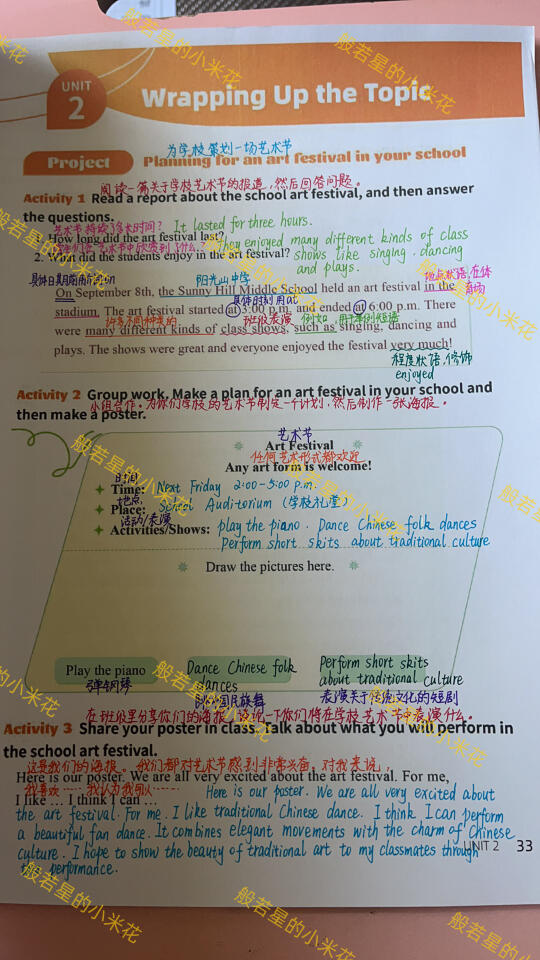 UNIT
2
Wrapping Up the Topic
为学校策划一场艺术节
Project
Planning for an art festival in your school
阅读一篇关于学校艺术节的报道，然后回答问题。
Activity 1 Read a report about the school art festival, and then answer
the questions.
艺术节持续了多长时间? It lasted for three hours.
1. How long did the art festival last?
They enjoyed many different kinds of class
2. What did the students enjoy in the art festival? shows like singing, dancing
and plays.
具体日期前用介词on
阳光山中学
地点状语,在体育场
On September 8th, the Sunny Hill Middle School held an art festival in the
具体时刻用at
stadium. The art festival started at 3:00 p.m. and ended at 6:00 p.m. There
许多不同种类的
班级表演
例如，用于举例短语
were many different kinds of class shows, such as singing, dancing and
plays. The shows were great and everyone enjoyed the festival very much!
程度状语,修饰
enjoyed
Activity 2 Group work. Make a plan for an art festival in your school and
小组合作。为你们学校的艺术节制定一个计划，然后制作一张海报。
then make a poster.
艺术节
Art Festival
任何艺术形式都欢迎
Any art form is welcome!
时间
Time: Next Friday 2:00-5:00 p.m.
地点
Place: School Auditorium (学校礼堂)
活动/表演
Activities/Shows: play the piano. Dance Chinese folk dances
Perform short skits about traditional culture
Draw the pictures here.
Play the piano
弹钢琴
Dance Chinese folk
dances
跳中国民族舞
Perform short skits
about traditional culture
表演关于传统文化的短剧
在班级里分享你们的海报。谈论一下你们将在学校艺术节中表演什么。
Activity 3 Share your poster in class. Talk about what you will perform in
the school art festival.
这是我们的海报。我们都对艺术节感到非常兴奋，对我来说，
Here is our poster. We are all very excited about the art festival. For me,
我喜欢……我认为我可以……
I like ... I think I can ...
Here is our poster. We are all very excited about
the art festival. For me. I like traditional Chinese dance. I think I can perform
a beautiful fan dance. It combines elegant movements with the charm of Chinese
culture. I hope to show the beauty of traditional art to my classmates through
the performance.
UNIT 2 33
般若星的小米花